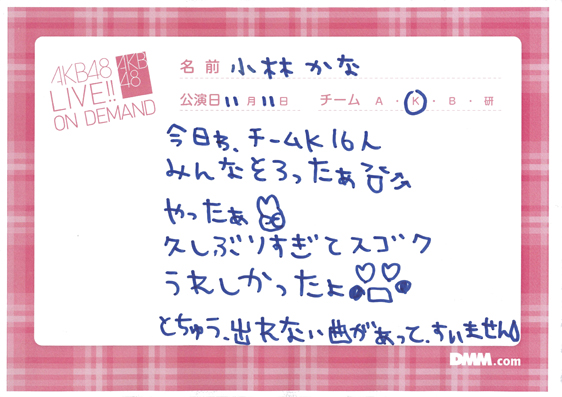 AKB48
LIVE!!
ON DEMAND
AKB
48
名前 小林かな
公演日 11月11日 チーム A・K・B・研
今日わ、チームK16人
みんなそろったぁ
やったぁ
久しぶりすぎてスゴク
うれしかったよ
とちゅう、出れない曲があって、すいません
DMM.com